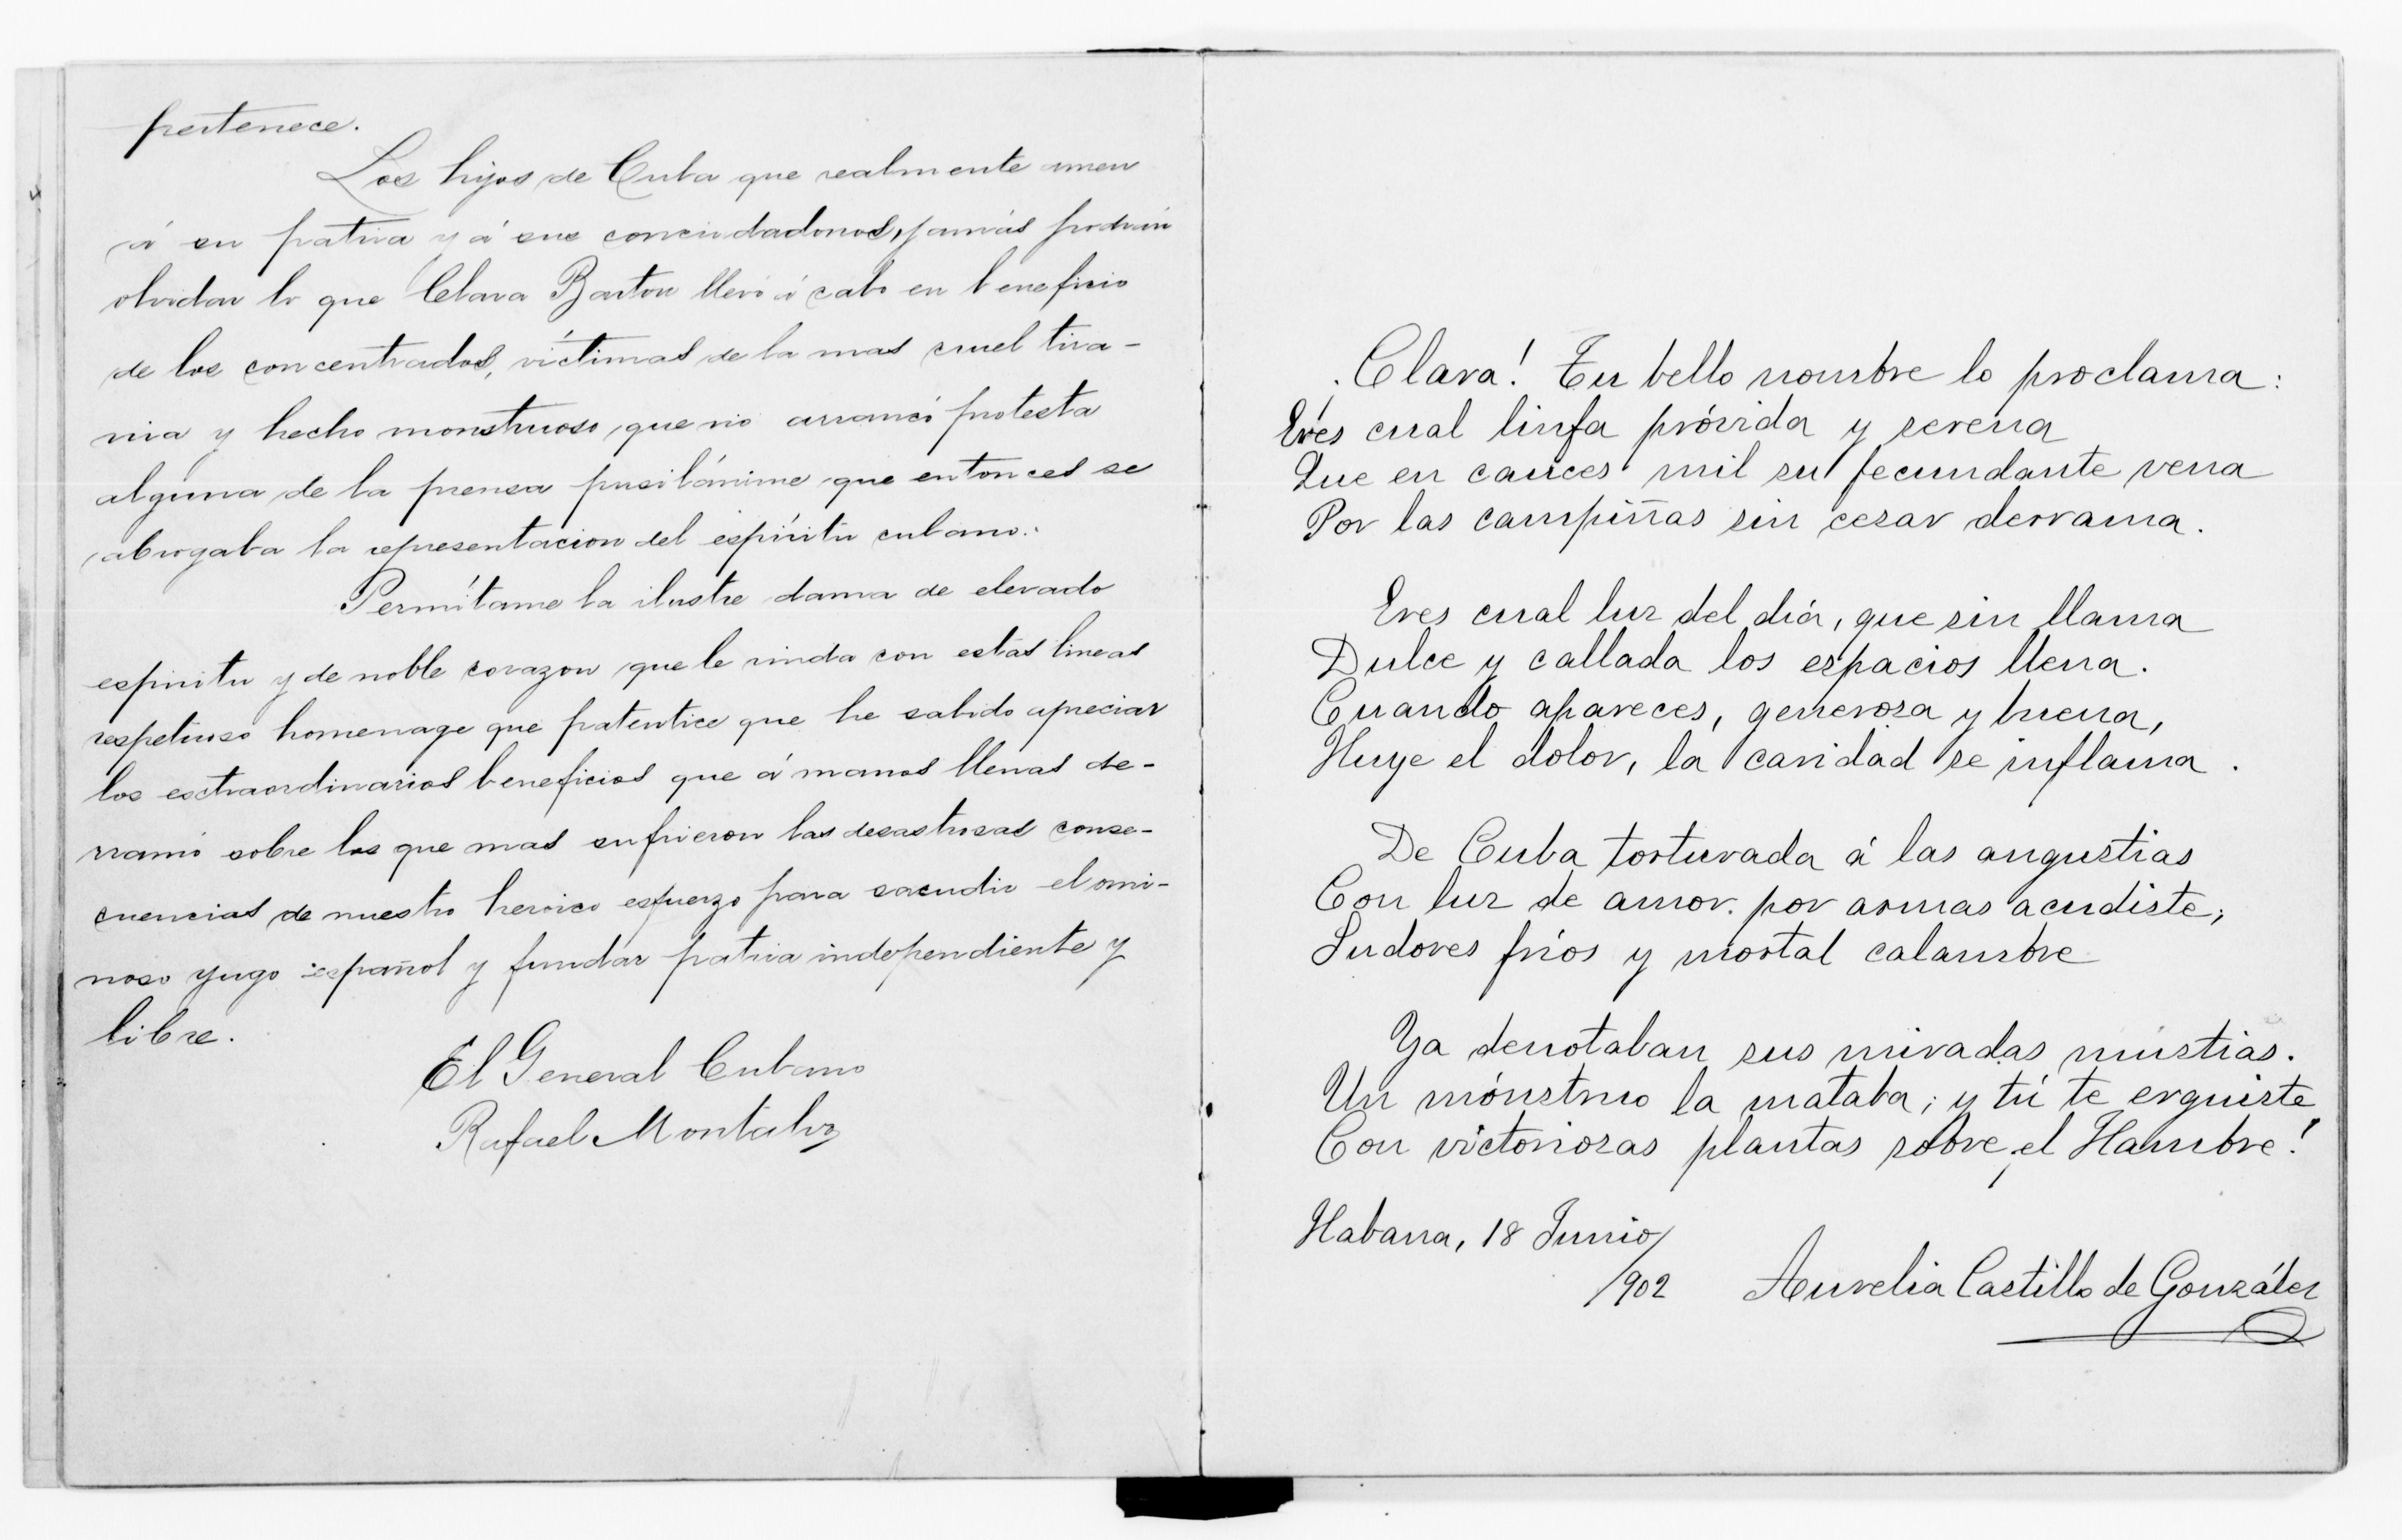 pertenece.
Los hijos de Cuba que realmente amen
á su patria y á sus conciudadanos, jamás podrán
olvidar lo que Clara Barton llevó á cabo en beneficio
de los concentrados, víctimas de la mas cruel tira-
nia y hecho monstruoso, que no arrancó protesta
alguna de la prensa pusilánime que entonces se
abrogaba la representacion del espíritu cubano.
Permítame la ilustre dama de elevado
espiritu y de noble corazon que le rinda con estas lineas
respetuoso homenage que patentice que he sabido apreciar
los extraordinarios beneficios que á manos llenas de-
rramó sobre los que mas sufrieron las desastrosas conse-
cuencias de nuestro heroico esfuerzo para sacudir el omi-
noso yugo español y fundar patria independiente y
libre.
El General Cubano
Rafael Montalvo
¡Clara! Tu bello nombre lo proclama:
Eres cual linfa próvida y serena
Que en cauces mil su fecundante vena
Por las campiñas sin cesar derrama.
Eres cual luz del día, que sin llama
Dulce y callada los espacios llena.
Cuando apareces, generosa y buena,
Huye el dolor, la caridad se inflama.
De Cuba torturada á las angustias
Con luz de amor por armas acudiste;
Sudores fríos y mortal calambre
Ya denotaban sus miradas mustias.
Un mónstruo la mataba; y tú te erguiste
Con victoriosas plantas sobre el Hambre!
Habana, 18 Junio/
/902 Aurelia Castillo de González